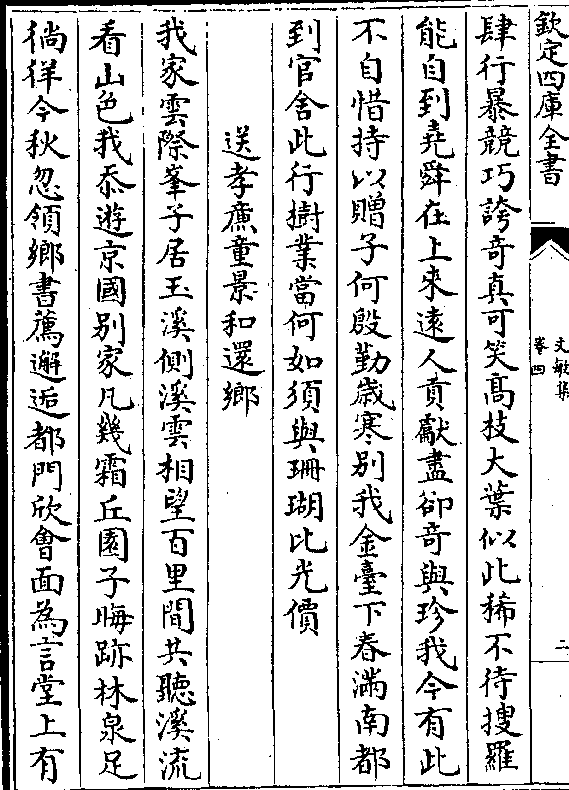 欽定四庫全書
文敏集
卷四
二
肆行暴競巧誇奇真可笑高技大葉似此稀不待搜羅
能自到堯舜在上來遠人貢獻盡卻奇與珍我今有此
不自惜持以贈子何殷勤歲寒別我金臺下春滿南都
到官舍此行樹業當何如須與珊瑚比光價
送孝廉童景和還鄉
我家雲際峯子居玉溪側溪雲相望百里間共聽溪流
看山色我忝遊京國别家凡幾霜丘園子晦跡林泉足
徜徉今秋忽領鄉書薦邂逅都門欣會面為言堂上有